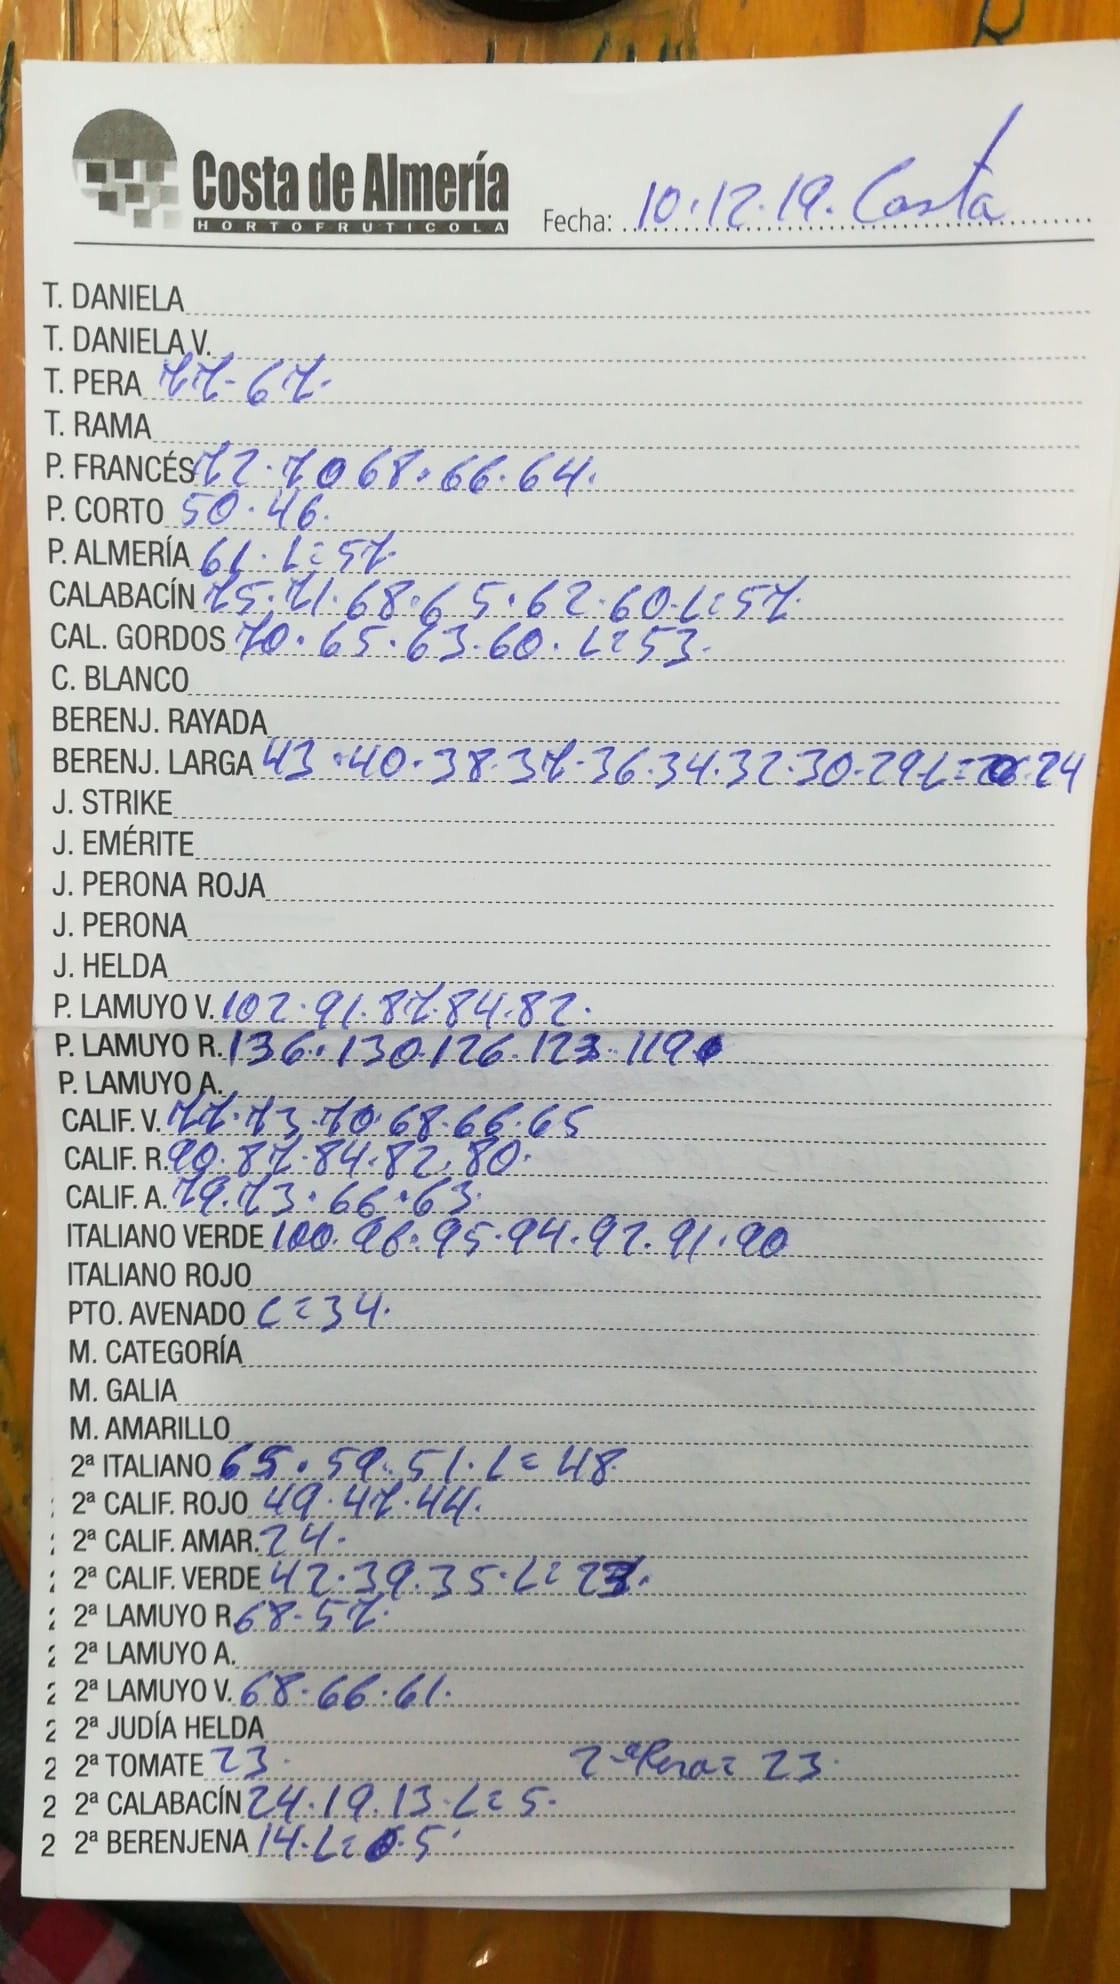 Costa de Almería
HORTOFRUTICOLA
Fecha: 10.12.19. Costa
T. DANIELA
T. DANIELA V.
T. PERA 77-67.
T. RAMA
P. FRANCÉS 72.70 68.66.64.
P. CORTO 50.46.
P. ALMERÍA 61. L=57.
CALABACÍN 75.71.68.65.62.60.L=57.
CAL. GORDOS 70.65.63.60. L=53.
C. BLANCO
BERENJ. RAYADA
BERENJ. LARGA 43.40.38.37-36.34.32.30.29-L= 24
J. STRIKE
J. EMÉRITE
J. PERONA ROJA
J. PERONA
J. HELDA
P. LAMUYO V. 102.91.87.84.82.
P. LAMUYO R. 136.130.126.123.119
P. LAMUYO A.
CALIF. V. 77.73.70.68.66.65
CALIF. R. 90.87.84.82.80.
CALIF. A. 79.73.66.63.
ITALIANO VERDE 100.96.95.94.92.91.90
ITALIANO ROJO
PTO. AVENADO L=34.
M. CATEGORÍA
M. GALIA
M. AMARILLO
2ª ITALIANO 65.59.51.L=48
2ª CALIF. ROJO 49.47.44.
2ª CALIF. AMAR. 24.
2ª CALIF. VERDE 42.39.35.L=
2ª LAMUYO R 68-57.
2ª LAMUYO A.
2ª LAMUYO V. 68.66.61.
2 2ª JUDÍA HELDA
2 2ª TOMATE 23. 2ª Pera= 23.
2 2ª CALABACÍN 24.19.13.L=5.
2 2ª BERENJENA 14.L= 5